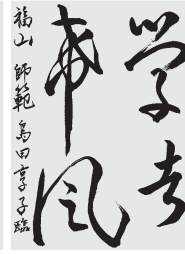 学者
希風
福山 師範 島田享子臨